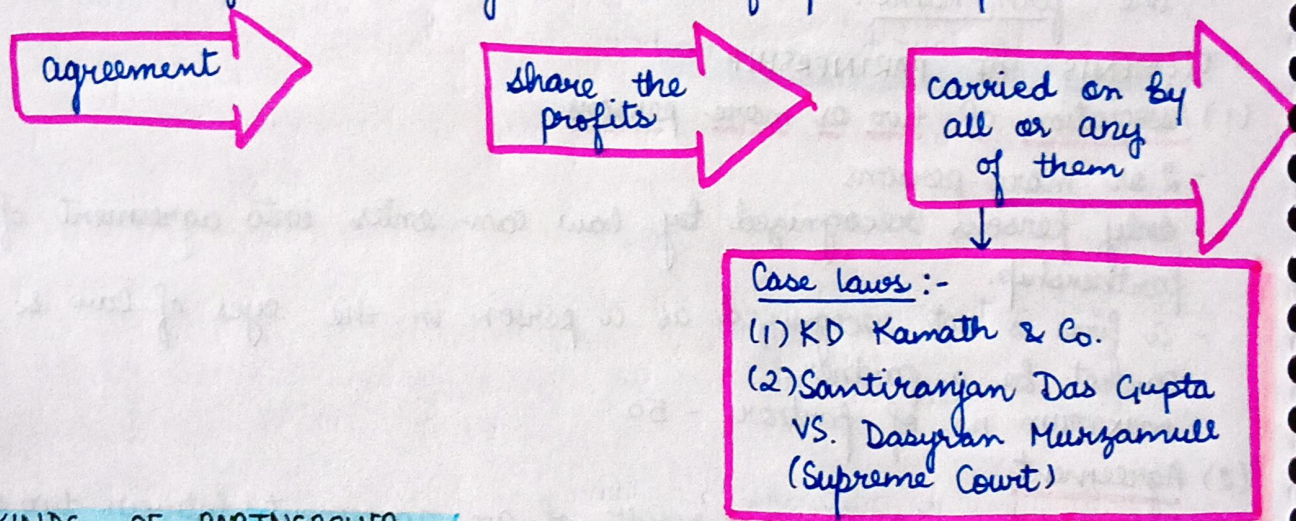 agreement
share the
profits
carried on by
all or any
of them
Case laws :-
(1) KD Kamath & Co.
(2) Santiranjan Das Gupta
VS. Dasyran Murzamull
(Supreme Court)
KINDS OF PARTNERSHIP